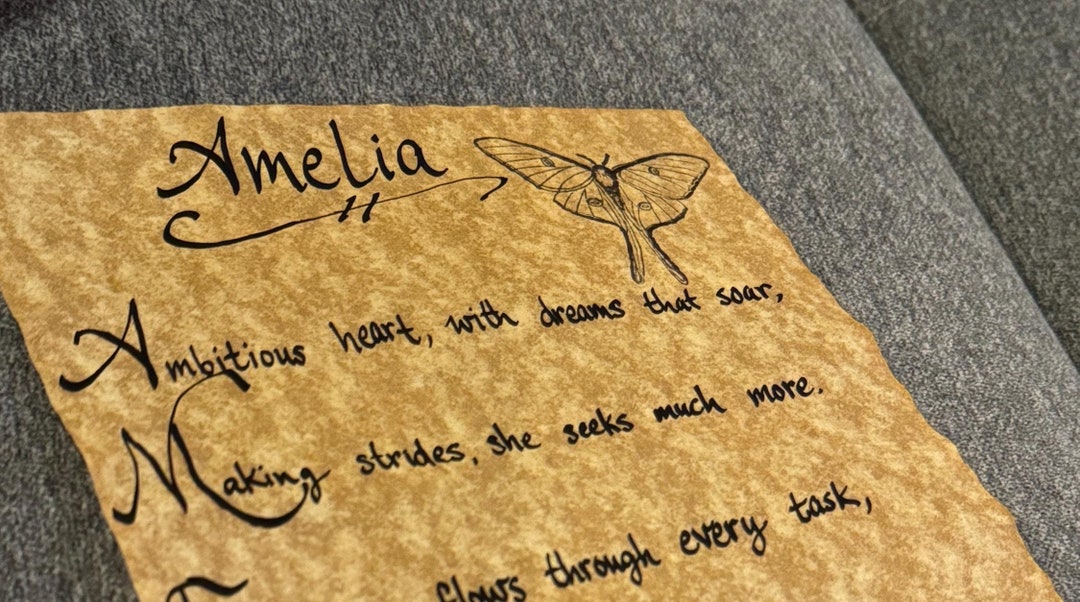 Amelia
Ambitious heart, with dreams that soar,
Making strides, she seeks much more.
flows through every task,